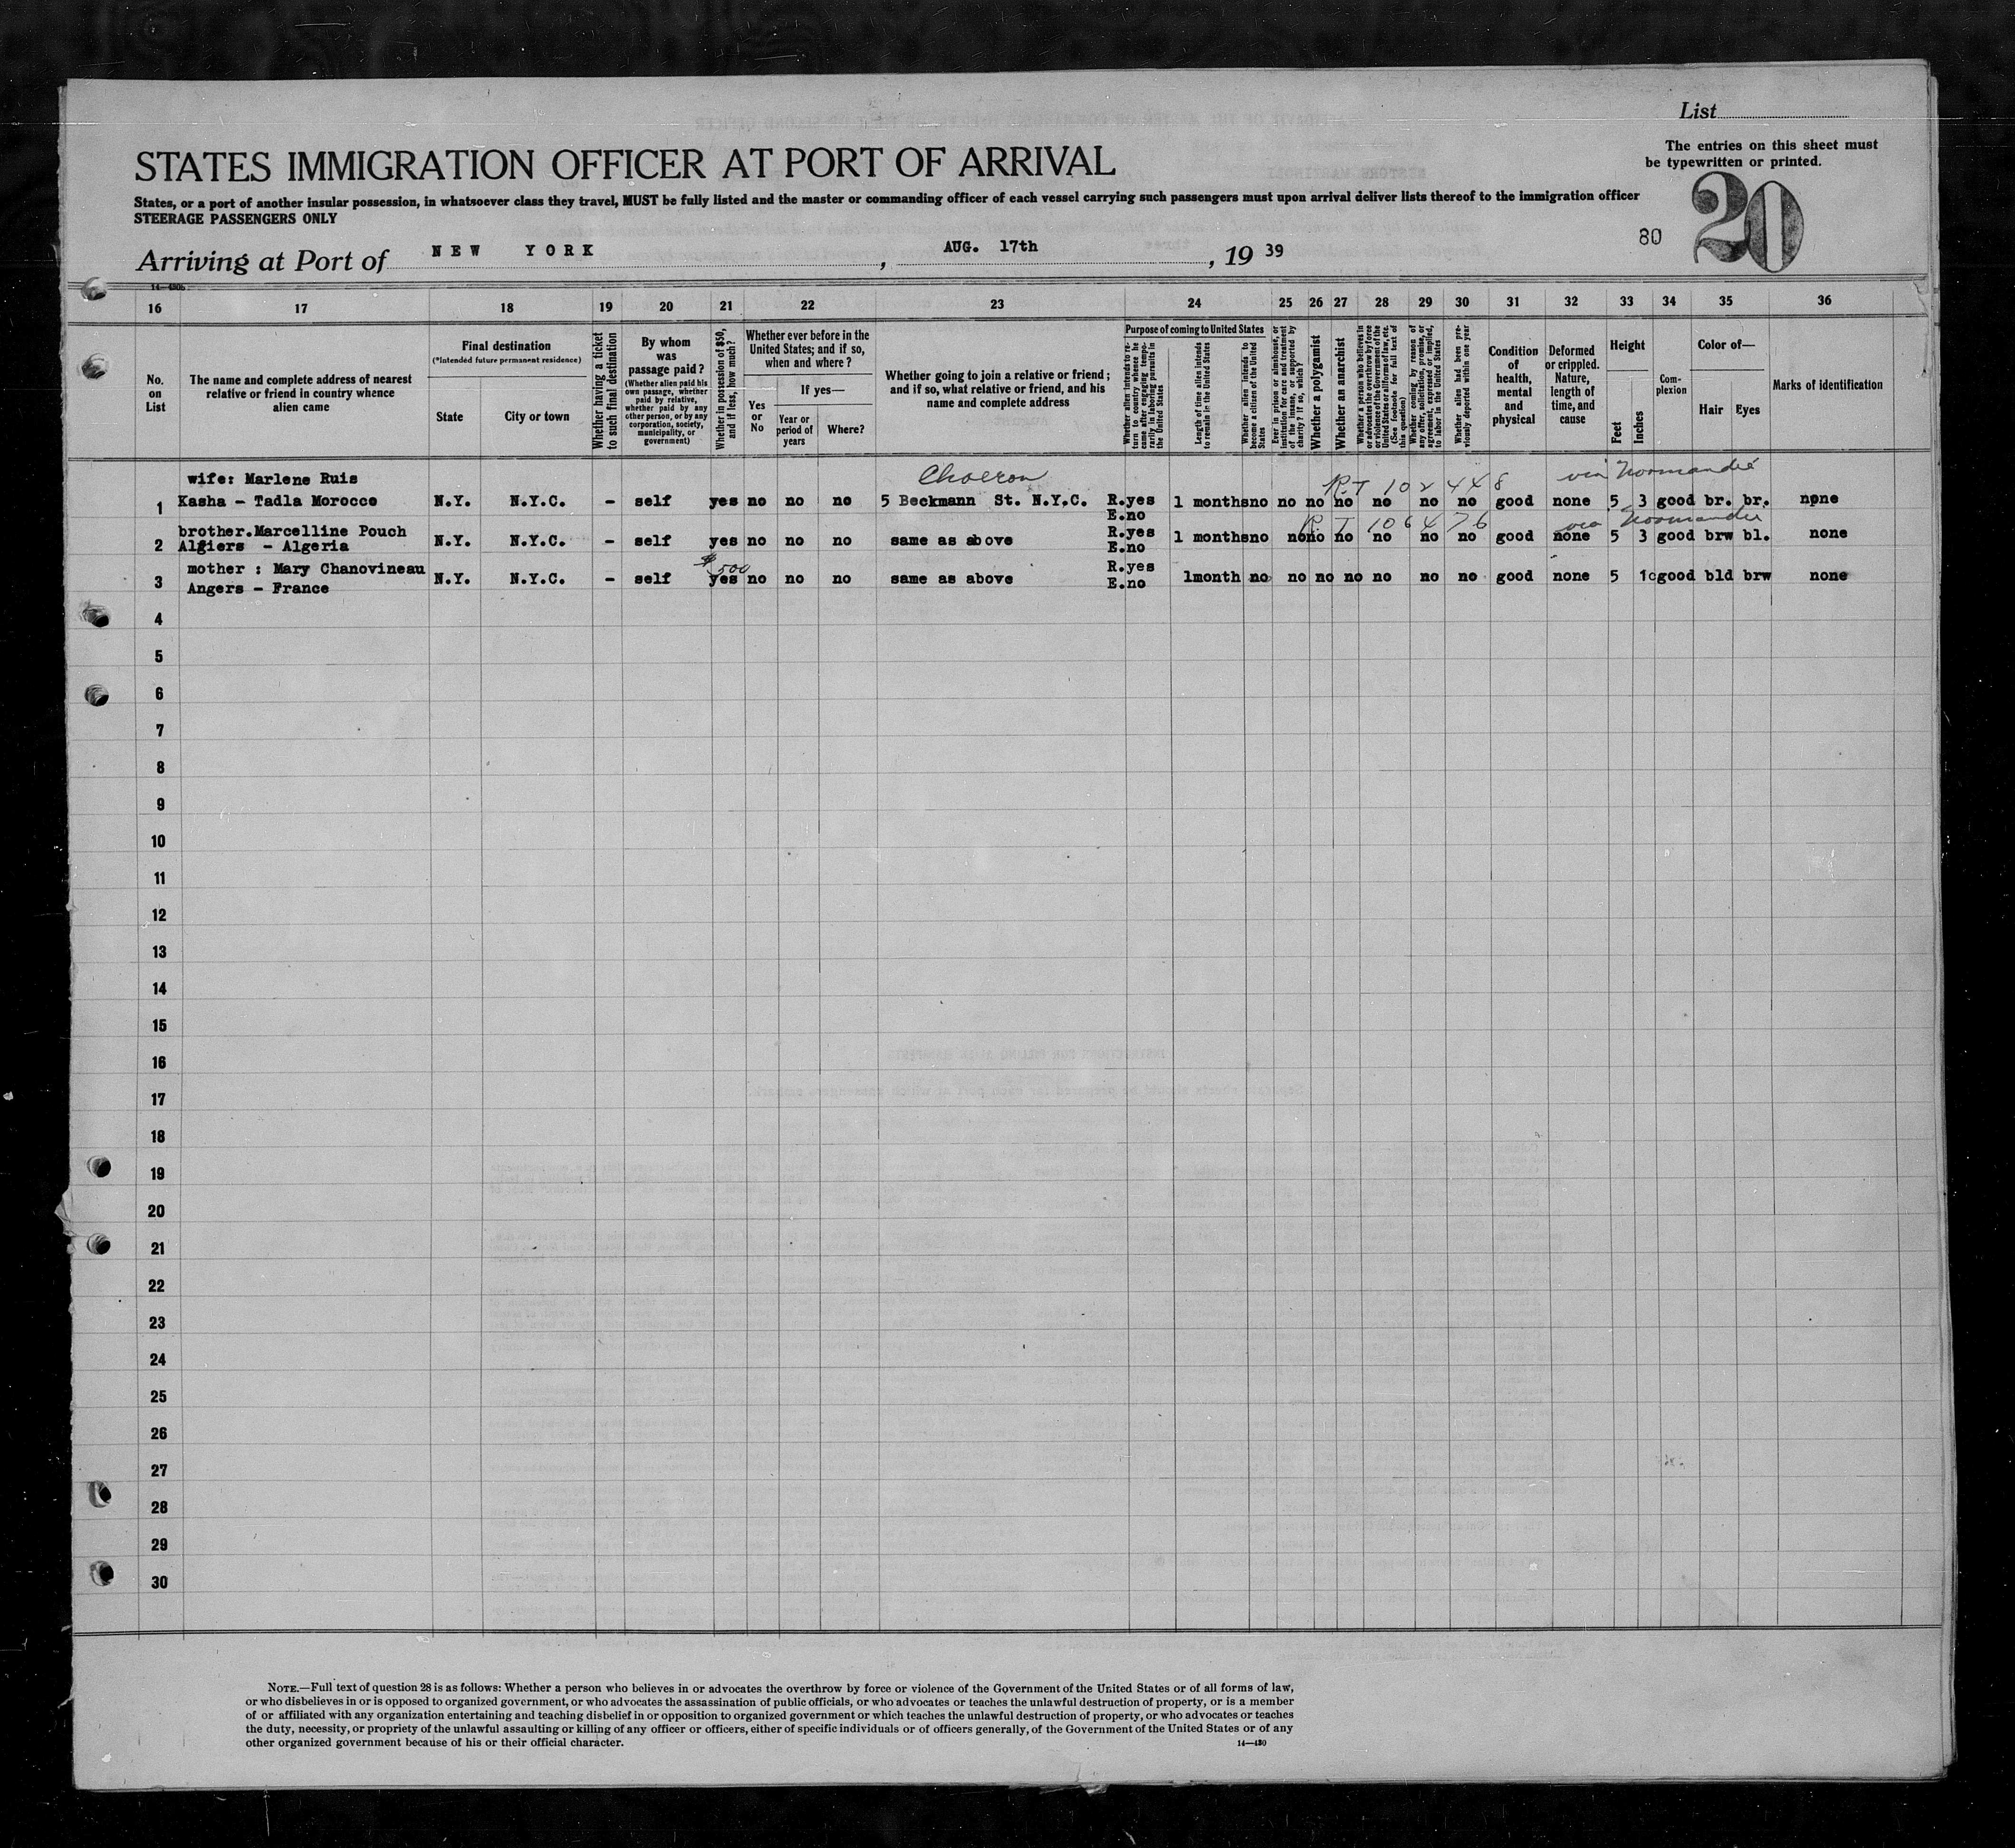 List
The entries on this sheet must
be typewritten or printed.
STATES IMMIGRATION OFFICER AT PORT OF ARRIVAL
States, or a port of another insular possession, in whatsoever class they travel, MUST be fully listed and the master or commanding officer of each vessel carrying such passengers must upon arrival deliver lists thereof to the immigration officer
STEERAGE PASSENGERS ONLY
80 20
Arriving at Port of NEW YORK, AUG. 17th, 19 39
14—430b
16 17 18 19 20 21 22 23 24 25 26 27 28 29 30 31 32 33 34 35 36
No. on List
The name and complete address of nearest relative or friend in country whence alien came
Final destination
(*Intended future permanent residence)
State
City or town
Whether having a ticket to such final destination
By whom was passage paid?
(Whether alien paid his own passage, whether paid by relative, whether paid by any other person, or by any corporation, society, municipality, or government)
Whether in possession of $50, and if less, how much?
Whether ever before in the United States; and if so, when and where?
Yes or No
If yes—
Year or period of years
Where?
Whether going to join a relative or friend; and if so, what relative or friend, and his name and complete address
Purpose of coming to United States
Whether alien intends to return to country whence he came after engaging temporarily in laboring pursuits in the United States
Length of time alien intends to remain in the United States
Whether alien intends to become a citizen of the United States
Ever in prison or almshouse, or institution for care and treatment of the insane, or supported by charity? If so, which?
Whether a polygamist
Whether an anarchist
Whether a person who believes in or advocates the overthrow by force or violence of the Government of the United States or all forms of law, etc. (See footnote for full text of this question)
Whether coming by reason of any offer, solicitation, promise, or agreement, expressed or implied, to labor in the United States
Whether alien had been previously deported within one year
Condition of health, mental and physical
Deformed or crippled. Nature, length of time, and cause
Height
Feet
Inches
Complexion
Color of—
Hair
Eyes
Marks of identification
wife: Marlene Ruis
R.T 102448 via Normandie
1 Kasha – Tadla Morocco N.Y. N.Y.C. – self yes no no no 5 Beckmann St. N.Y.C. R.yes 1 months no no no no no no no good none 5 3 good br. br. none
E.no
R.T 106476 via Normandie
brother.Marcelline Pouch R.yes
2 Algiers – Algeria N.Y. N.Y.C. – self yes no no no same as above E.no 1 months no no no no no no no good none 5 3 good brw bl. none
$500
mother : Mary Chanovineau R.yes
3 N.Y. N.Y.C. – self yes no no no same as above E.no 1month no no no no no no no good none 5 10 good bld brw none
Angers – France
4
5
6
7
8
9
10
11
12
13
14
15
16
17
18
19
20
21
22
23
24
25
26
27
28
29
30
NOTE.—Full text of question 28 is as follows: Whether a person who believes in or advocates the overthrow by force or violence of the Government of the United States or of all forms of law,
or who disbelieves in or is opposed to organized government, or who advocates the assassination of public officials, or who advocates or teaches the unlawful destruction of property, or is a member
of or affiliated with any organization entertaining and teaching disbelief in or opposition to organized government or which teaches the unlawful destruction of property, or who advocates or teaches
the duty, necessity, or propriety of the unlawful assaulting or killing of any officer or officers, either of specific individuals or of officers generally, of the Government of the United States or of any
other organized government because of his or their official character.
14—430